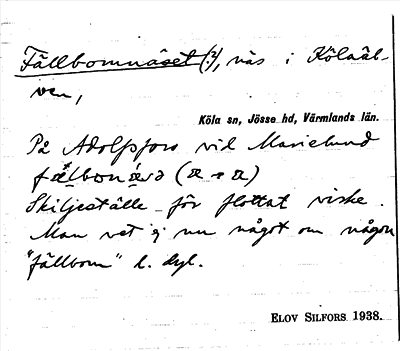 Fällbomnäset (?), näs i Köla älven,
Köla sn, Jösse hd, Värmlands län.
På Adolfsfors vid Marielund
Skiljeställe för flottat virke.
Man vet ej nu något om någon
"fällbom" l. dyl.
ELOV SILFORS 1938.